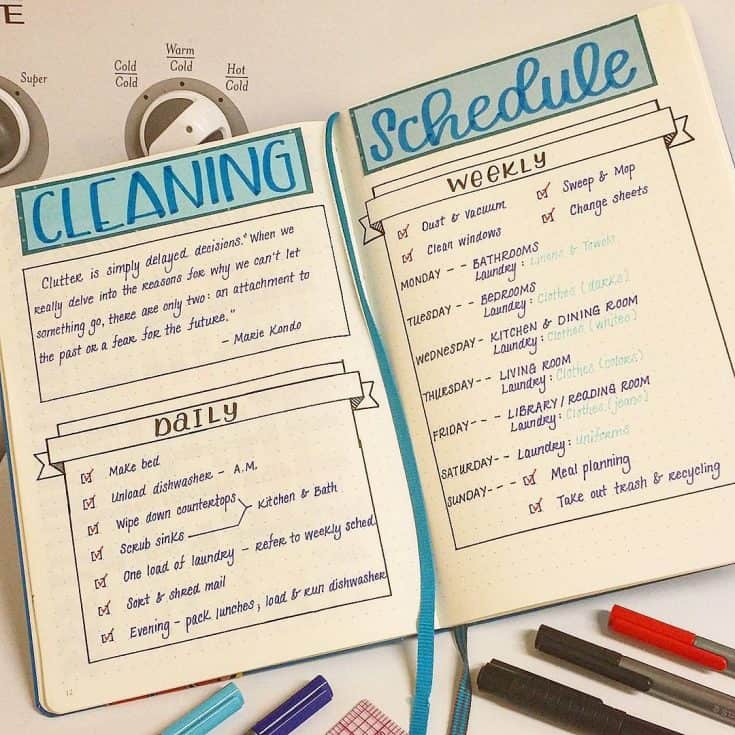 E
Super
Cold
Cold
Warm
Cold
Hot
Cold
CLEANING
Clutter is simply delayed decisions." When we
really delve into the reasons for why we can't let
something go, there are only two: an attachment to
the past or a fear for the future."
- Marie Kondo
DAILY
Make bed
Unload dishwasher - A.M.
Wipe down countertops
Scrub sinks
Kitchen & Bath
One load of laundry - refer to weekly sched
Sort & shred mail
Evening - pack lunches, load & run dishwasher
12
Schedule
WEEKLY
Dust & vacuum
Sweep & Mop
Clean windows
Change sheets
MONDAY - - BATHROOMS
Laundry: Linens & Towels
TUESDAY - - BEDROOMS
Laundry: Clothes (darks)
WEDNESDAY - KITCHEN & DINING ROOM
Laundry: Clothes (whites)
THURSDAY - - LIVING ROOM
Laundry: Clothes (colors)
FRIDAY - - - LIBRARY / READING ROOM
Laundry: Clothes (jeans)
SATURDAY - - Laundry: uniforms
SUNDAY - - - Meal planning
Take out trash & recycling